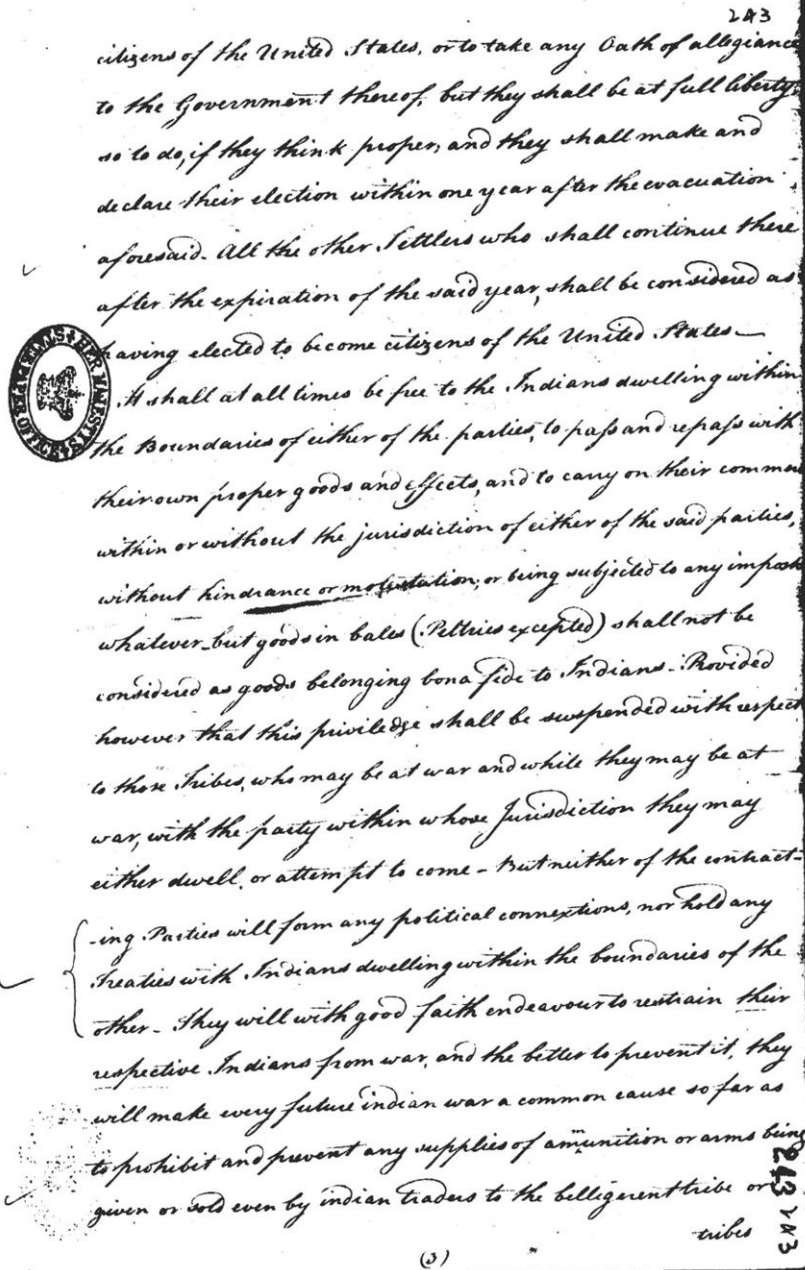 243
citizens of the United States, or to take any Oath of allegiance
to the Government thereof, but they shall be at full liberty
so to do, if they think proper, and they shall make and
declare their election within one year after the evacuation
aforesaid. All the other Settlers who shall continue there
after the expiration of the said year, shall be considered as
having elected to become citizens of the United States—
It shall at all times be free to the Indians dwelling within
the Boundaries of either of the parties, to pass and repass with
their own proper goods and effects, and to carry on their commer
within or without the jurisdiction of either of the said parties,
without hindrance or molestation, or being subjected to any impost
whatever - but goods in bales (Peltries excepted) shall not be
considered as goods belonging bona fide to Indians - Provided
however that this priviledge shall be suspended with respect
to those Tribes, who may be at war and while they may be at
war, with the party within whose Jurisdiction they may
either dwell, or attempt to come - But neither of the contract-
-ing Parties will form any political connextions, nor hold any
Treaties with Indians dwelling within the boundaries of the
other - They will with good faith endeavour to restrain their
respective Indians from war, and the better to prevent it, they
will make every future indian war a common cause so far as
to prohibit and prevent any supplies of ammunition or arms being
given or sold even by indian traders to the belligerent tribe or
tribes
(3)
243
243
HER MAJESTY'S STATE PAPER OFFICE